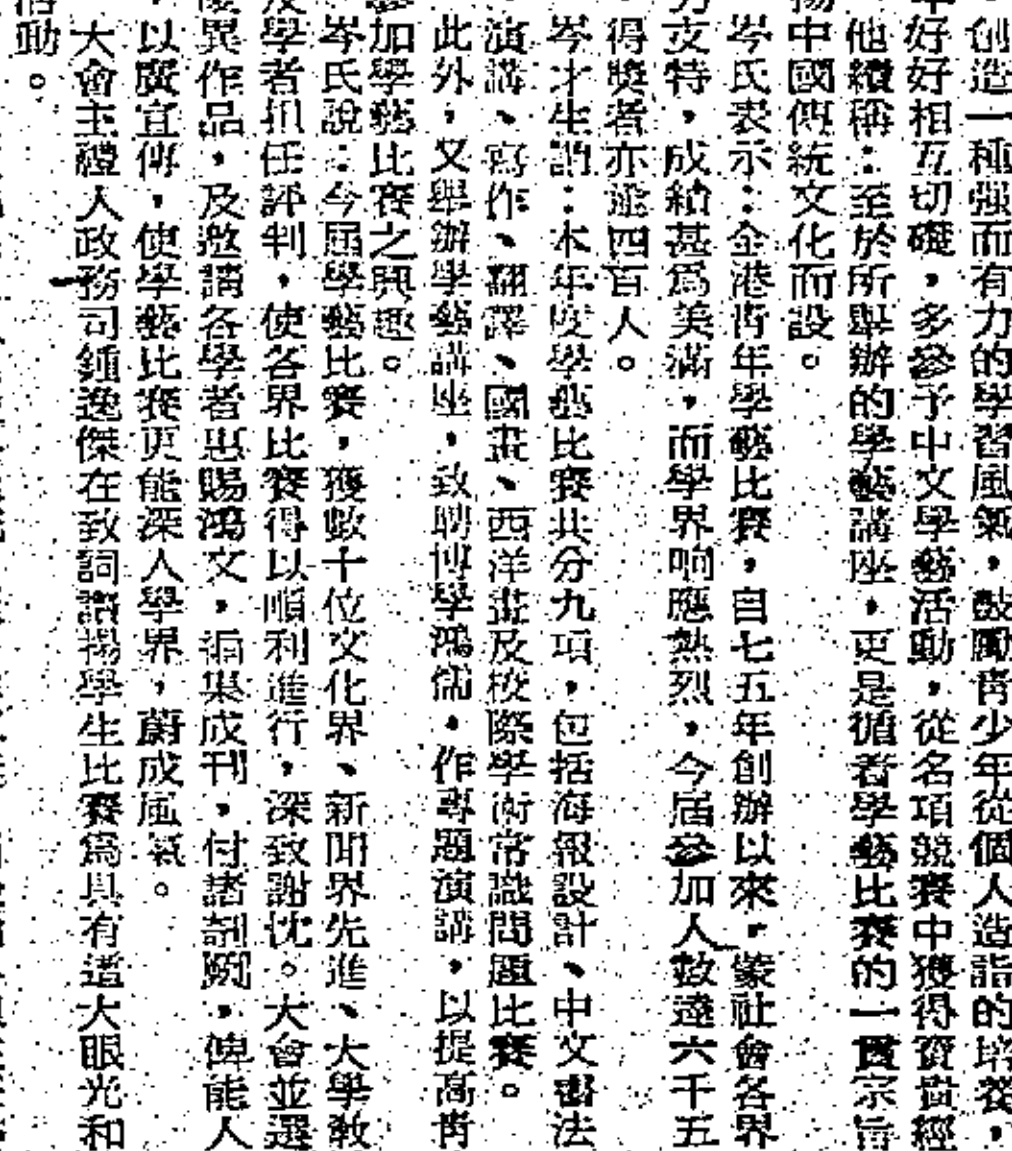 創造一種强而有力的學習風氣，鼓勵青少年從個人造詣的培養，
年好好相互切磋，多參予中文學藝活動，從各項競賽中獲得寶貴經
他續稱：至於所舉辦的學藝講座，更是循着學藝比賽的一貫宗旨
揚中國傳統文化而設。
岑氏表示：金港青年學藝比賽，自七五年創辦以來，蒙社會各界
力支持，成績甚爲美滿，而學界响應熱烈，今屆參加人數達六千五
得獎者亦逾四百人。
岑才生謂：本年度學藝比賽共分九項，包括海報設計、中文書法
演講、寫作、翻譯、國畫、西洋畫及校際學術常識問題比賽。
此外，又舉辦學藝講座，敦聘博學鴻儒，作專題演講，以提高青
參加學藝比賽之興趣。
岑氏說：今屆學藝比賽，獲數十位文化界、新聞界先進、大學教
及學者担任評判，使各界比賽得以順利進行，深致謝忱。大會並選
優異作品，及邀請各學者惠賜鴻文，編集成刊，付諸剞劂，俾能人
，以廣宣傳，使學藝比賽更能深入學界，蔚成風氣。
大會主禮人政務司鍾逸傑在致詞讚揚學生比賽爲具有遠大眼光和
活動。